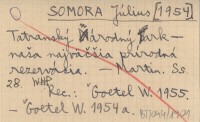 SOMORA Július [1954]
Tatranský Národný Park -
naša najväčšia prírodná
rezervácia. - Martin. Ss.
28. WHP
Rec.: Goetel W. 1955.
- Goetel W. 1954a.